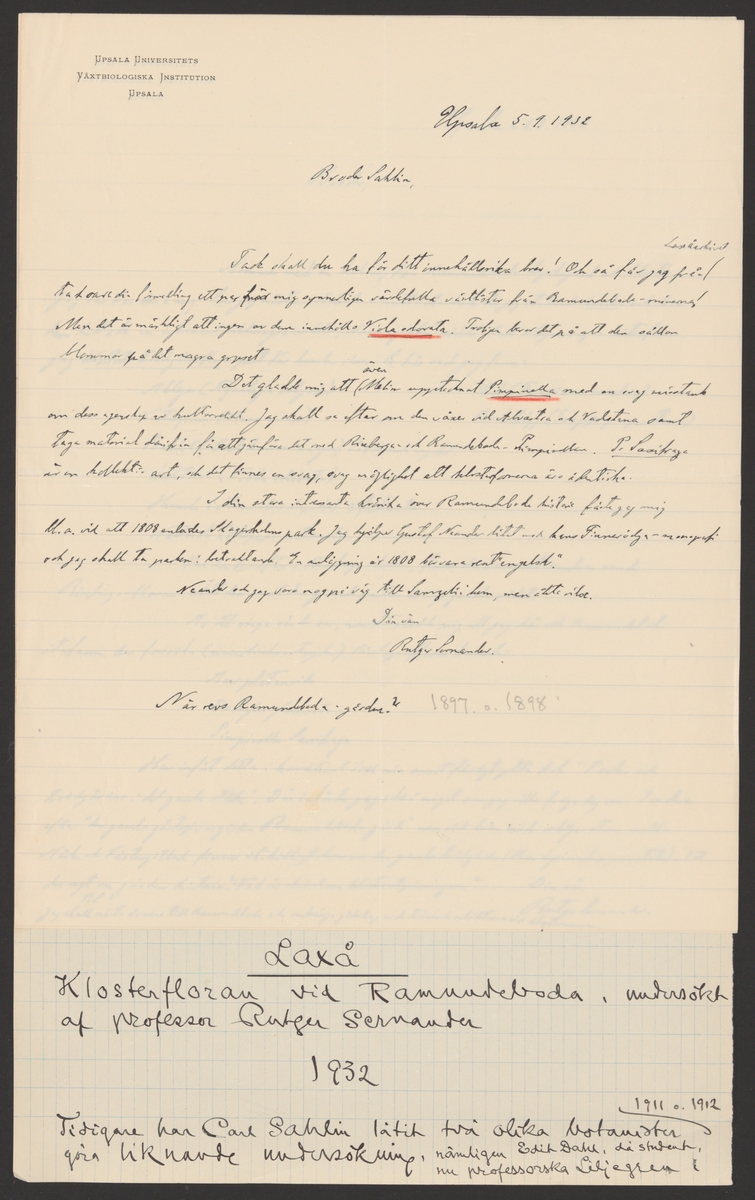 UPSALA UNIVERSITETS
VÄXTBIOLOGISKA INSTITUTION
UPSALA
Upsala 5.9.1932
Broder Sahlin,
Tack skall du ha för ditt innehållsrika bref! Och så får jag
mig synnerligen värdefulla växtlistor från Ramundeboda-
Men det är märkligt att ingen av dem innehålla Viola odorata. Troligen beror det på att den sällan
blommar på det magra gruset
Det gladde mig att även upptecknat Pimpinella med en svag misstank
om dess egenskap av kulturväxt. Jag skall se efter om den växer vid Alvastra och Vadstena samt
taga material därifrån för att jämföra det med Riseberga- och Ramundeboda-Pimpinellan. P. Saxifraga
är en kollektiv art, och det finnes en svag, svag möjlighet att klosterformerna äro identiska.
I din stora intressanta krönika över Ramundeboda historia fäste jag mig
bl.a. vid att 1808 anlades Skagersholms park. Jag hjelper Gustof Neander litet med hans Finnerödja-monografi
och jag skall ta parken i betraktande. En anläggning år 1808 bör vara rent "engelsk".
Neander och jag voro på väg till hem, men
Din vän
Rutger Sernander.
När revs Ramundeboda-gården? 1897 o. 1898
Laxå
Klosterfloran vid Ramundeboda, undersökt
af professor Rutger Sernander
1932
1911 o. 1912
Tidigare har Carl Sahlin låtit två olika botanister
göra liknande undersökning, nämligen Edit Dahl, då student,
nu professorska Liljegren